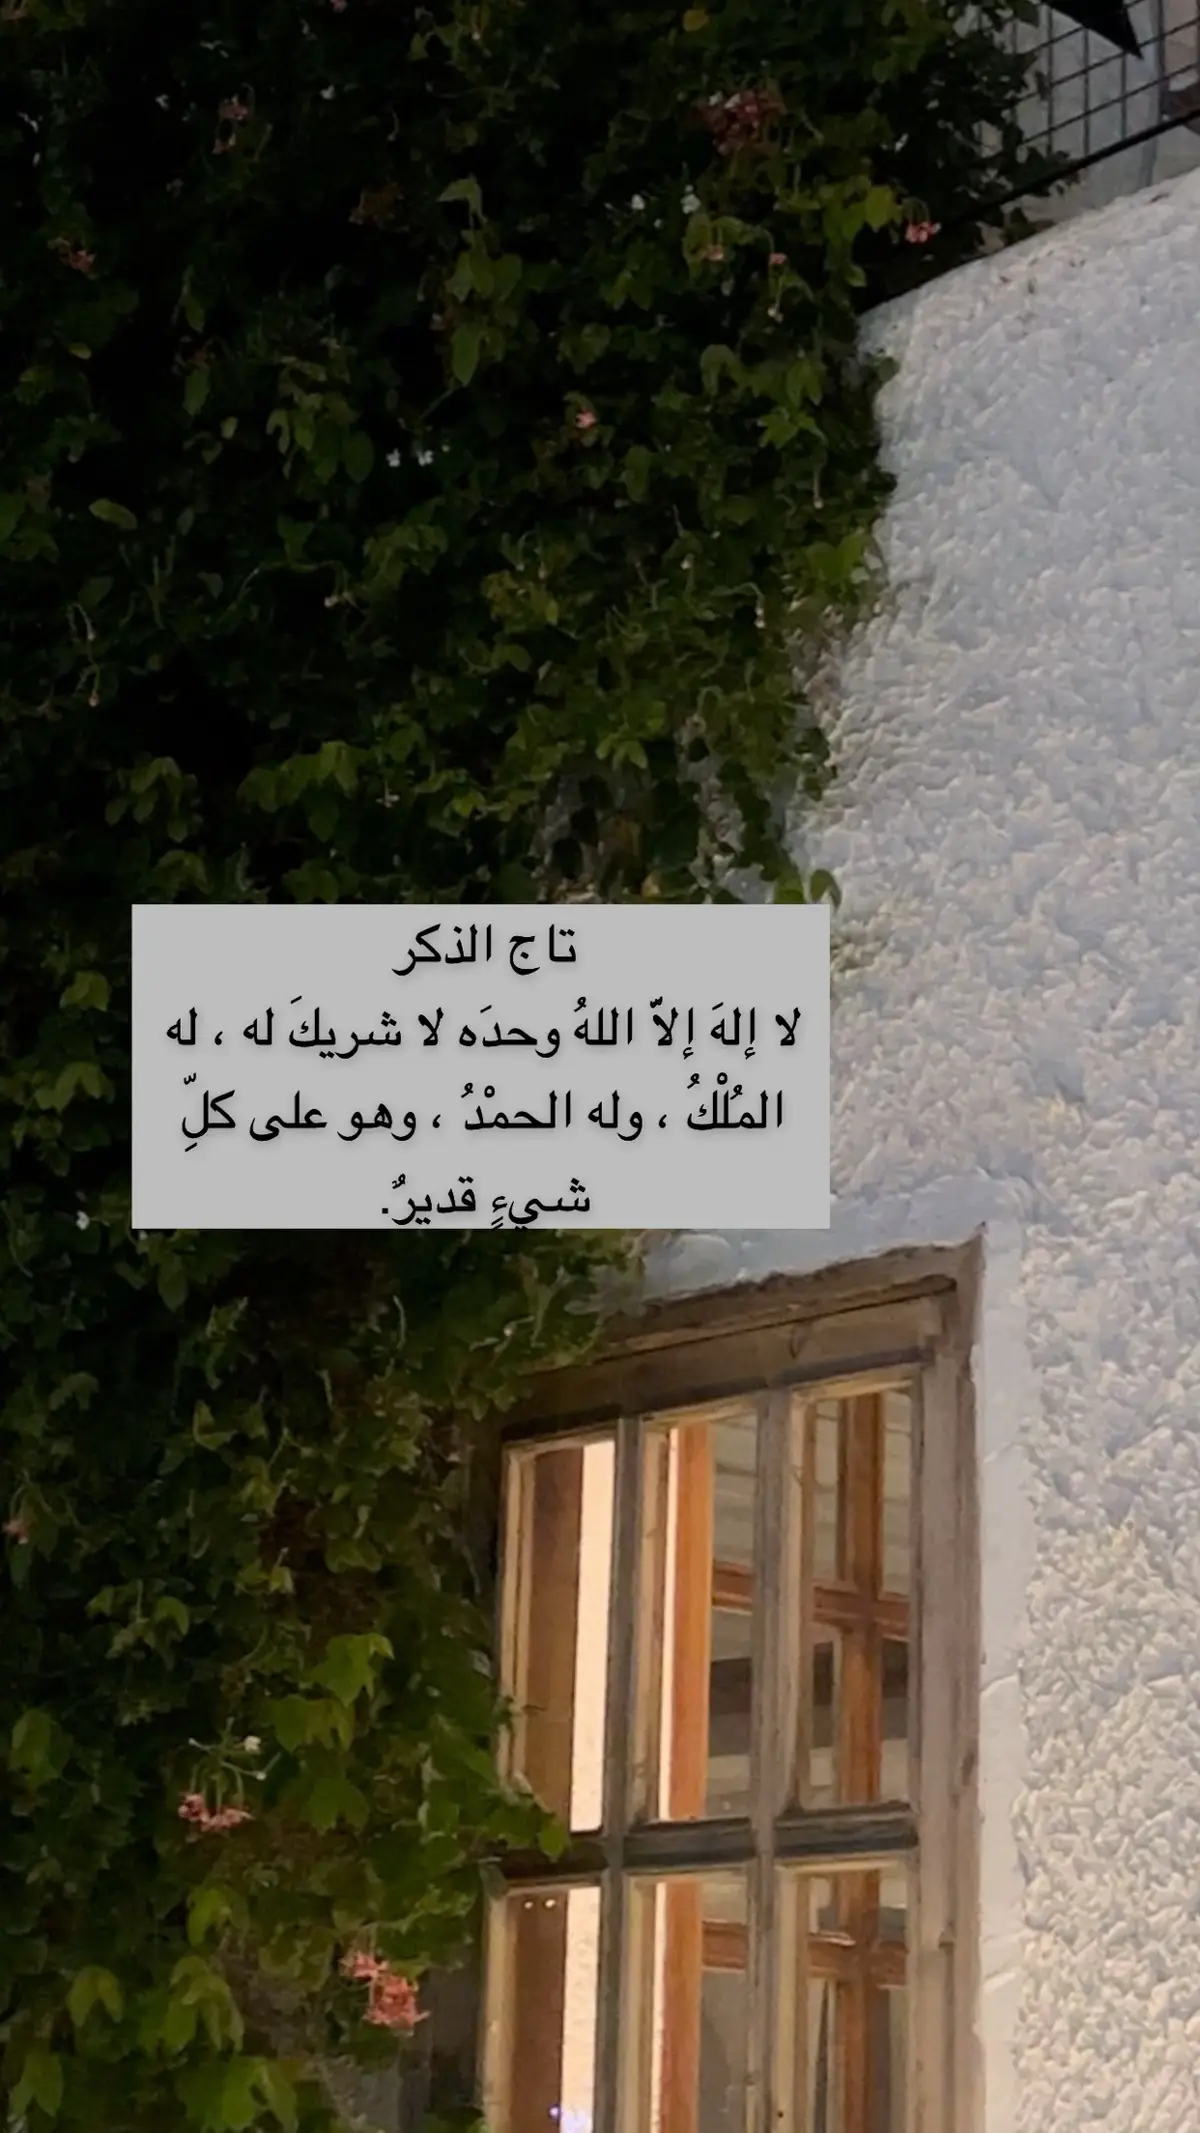 تاج الذكر
لا إلهَ إلاّ اللهُ وحدَه لا شريكَ له ، له
المُلْكُ ، وله الحمْدُ ، وهو على كلِّ
شيءٍ قديرٌ.